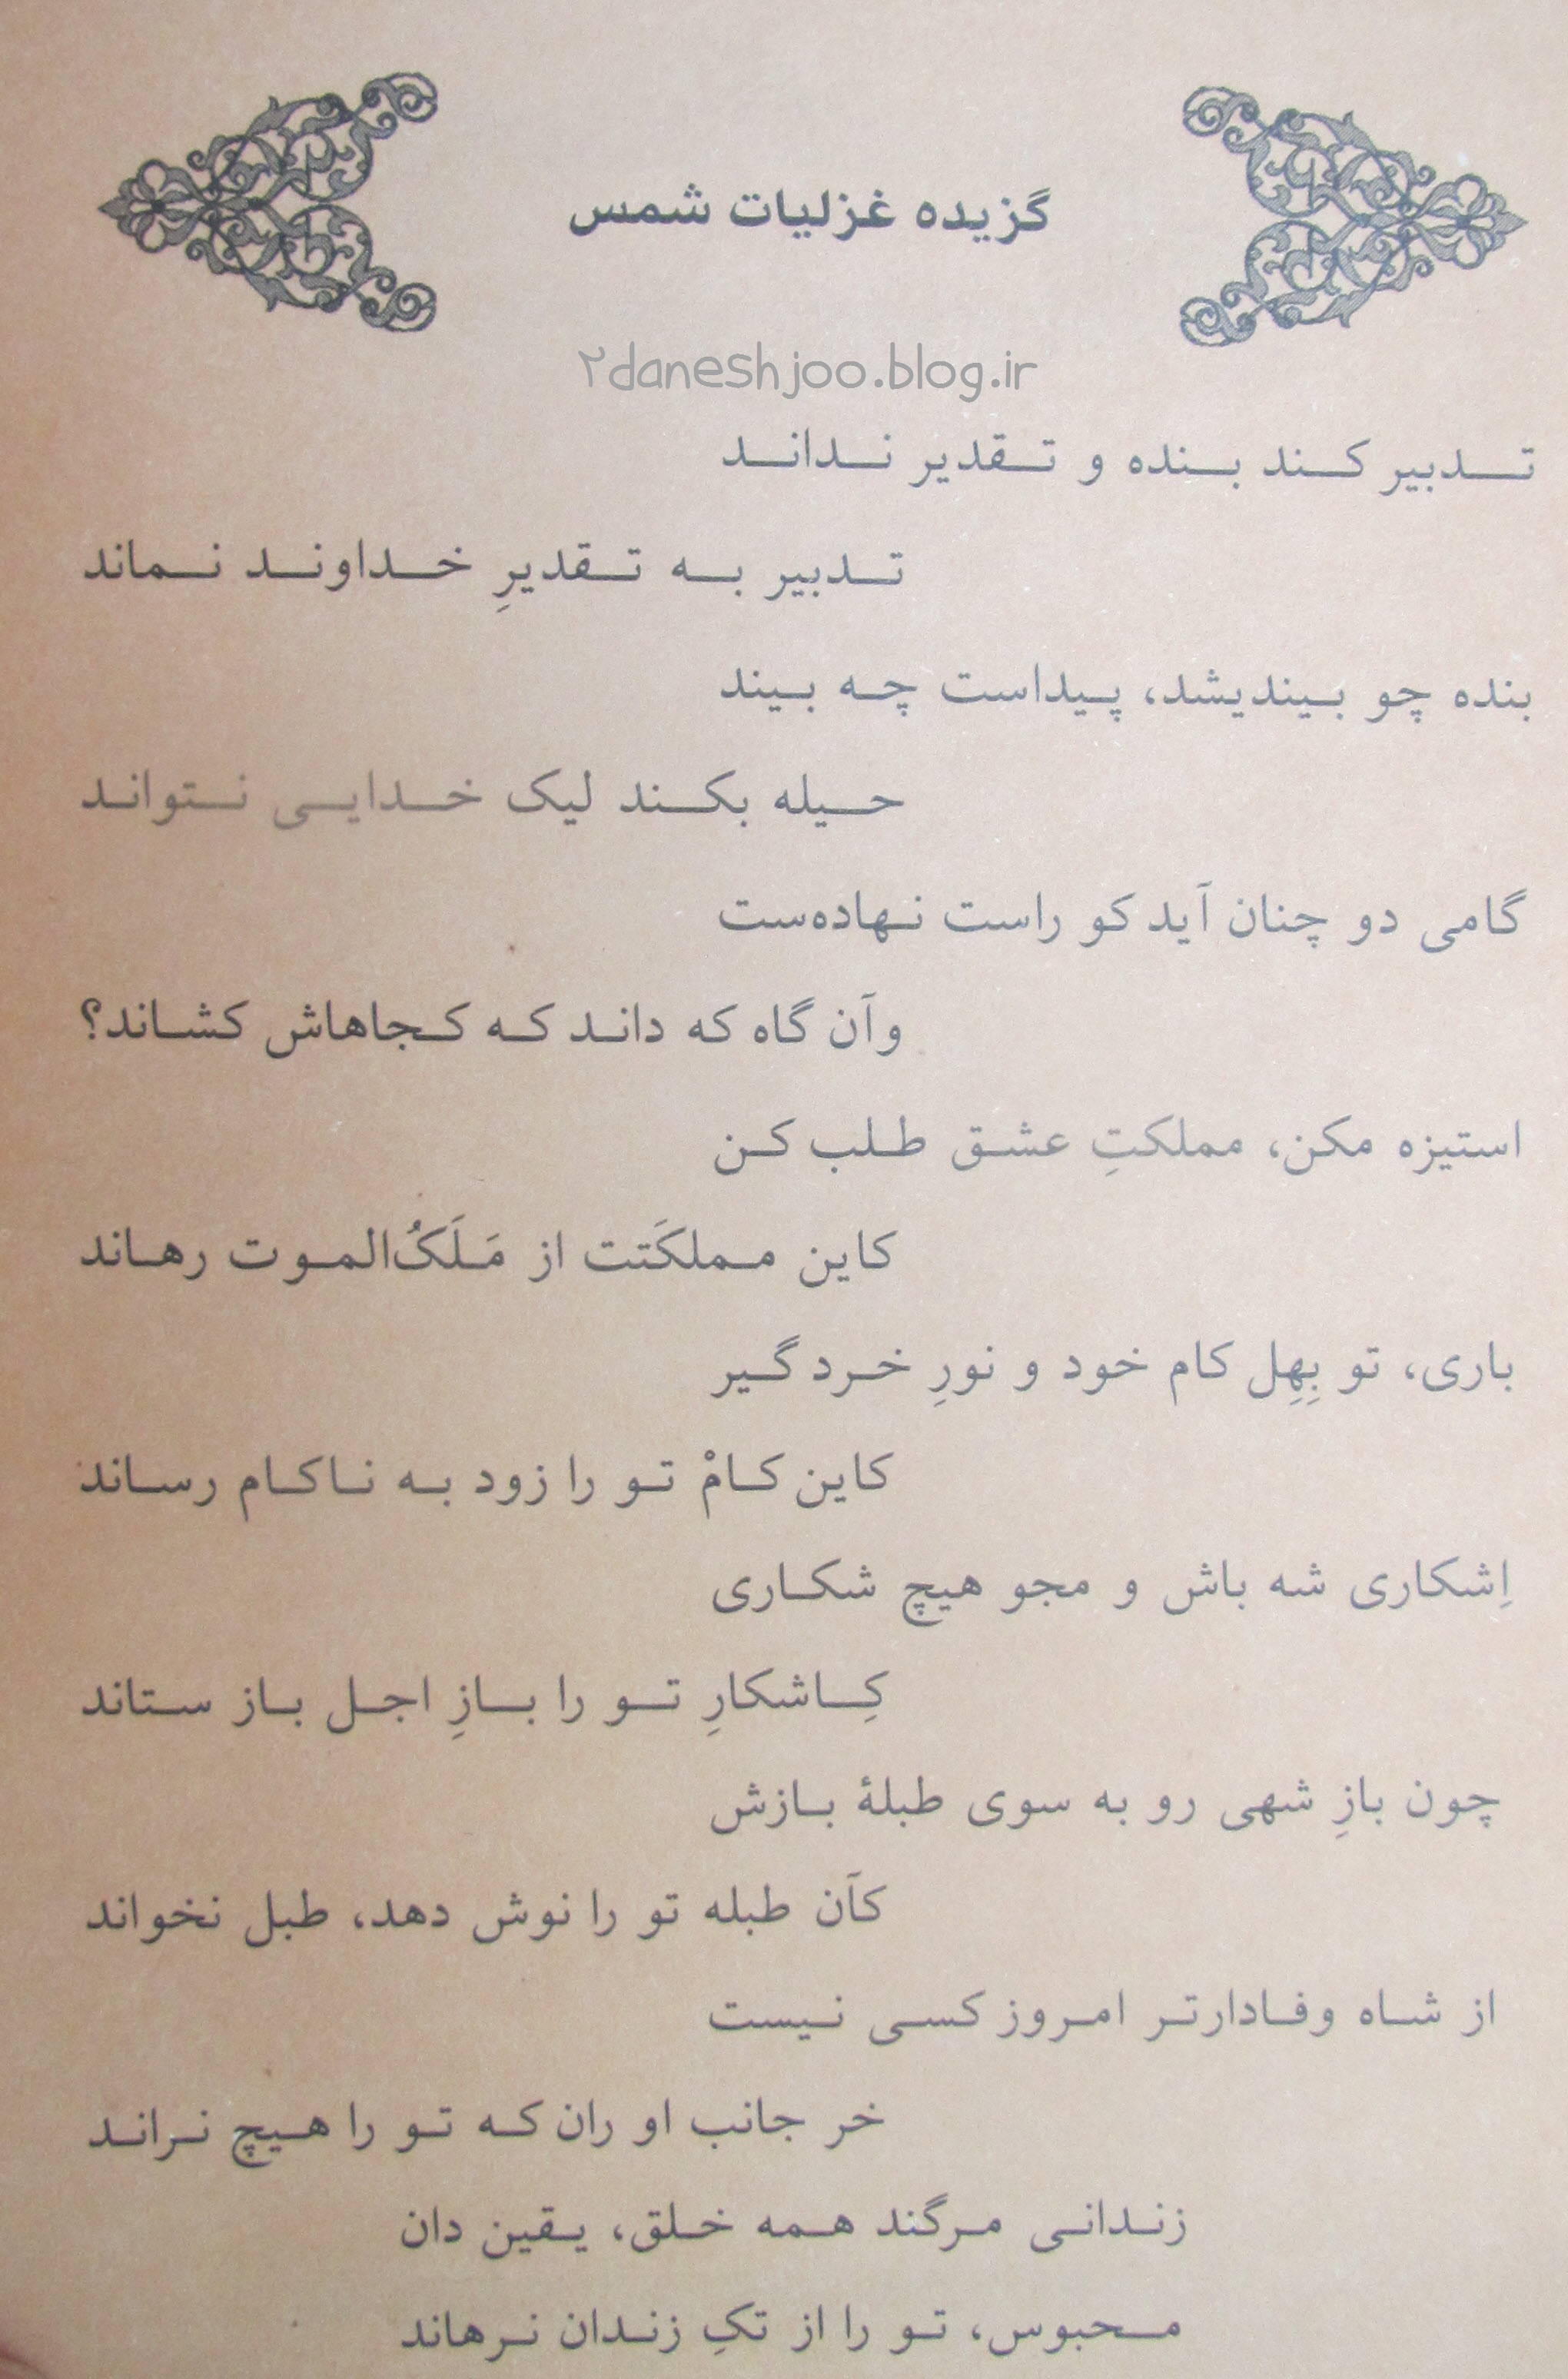 گزیده غزلیات شمس
۲daneshjoo.blog.ir
تدبیر کند بنده و تقدیر نداند
تدبیر به تقدیرِ خداوند نماند
بنده چو بیندیشد، پیداست چه بیند
حیله بکند لیک خدایی نتواند
گامی دو چنان آید کو راست نهاده‌ست
وآن گاه که داند که کجاهاش کشاند؟
استیزه مکن، مملکتِ عشق طلب کن
کاین مملکَتت از مَلَکُ‌الموت رهاند
باری، تو بِهِل کام خود و نورِ خرد گیر
کاین کامْ تو را زود به ناکام رساند
اِشکاری شه باش و مجو هیچ شکاری
کِاشکارِ تو را بازِ اجل باز ستاند
چون بازِ شهی رو به سوی طبلهٔ بازش
کآن طبله تو را نوش دهد، طبل نخواند
از شاه وفادارتر امروز کسی نیست
خر جانب او ران که تو را هیچ نراند
زندانی مرگند همه خلق، یقین دان
محبوس، تو را از تکِ زندان نرهاند